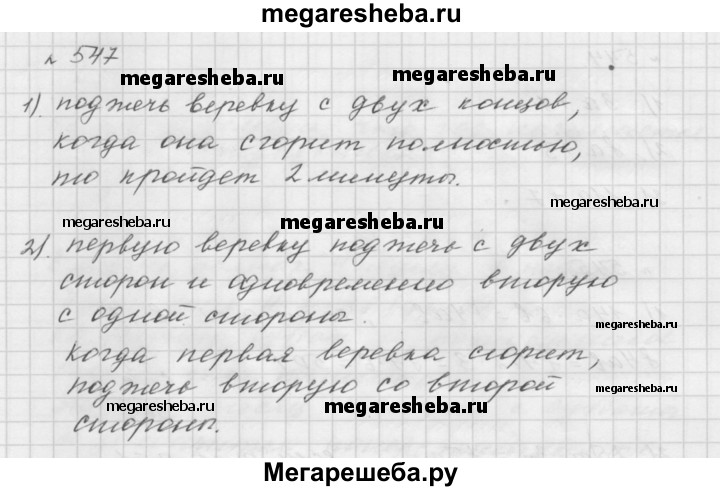 megaresheba.ru
№ 547
megaresheba.ru
megaresheba.ru
1). поджечь веревку с двух концов,
когда она сгорит полностью,
то пройдет 2 минуты.
megaresheba.ru
megaresheba.ru
megaresheba.ru
2). первую веревку поджечь с двух
сторон и одновременно вторую
с одной стороны.
megaresheba.ru
когда первая веревка сгорит,
поджечь вторую со второй
megaresheba.ru
megaresheba.ru
megaresheba.ru
стороны.
Мегарешеба.ру